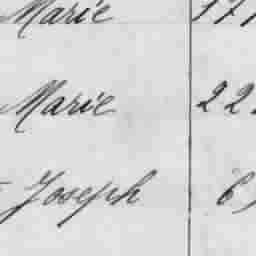 Marie 171
Marie 22
Joseph 6